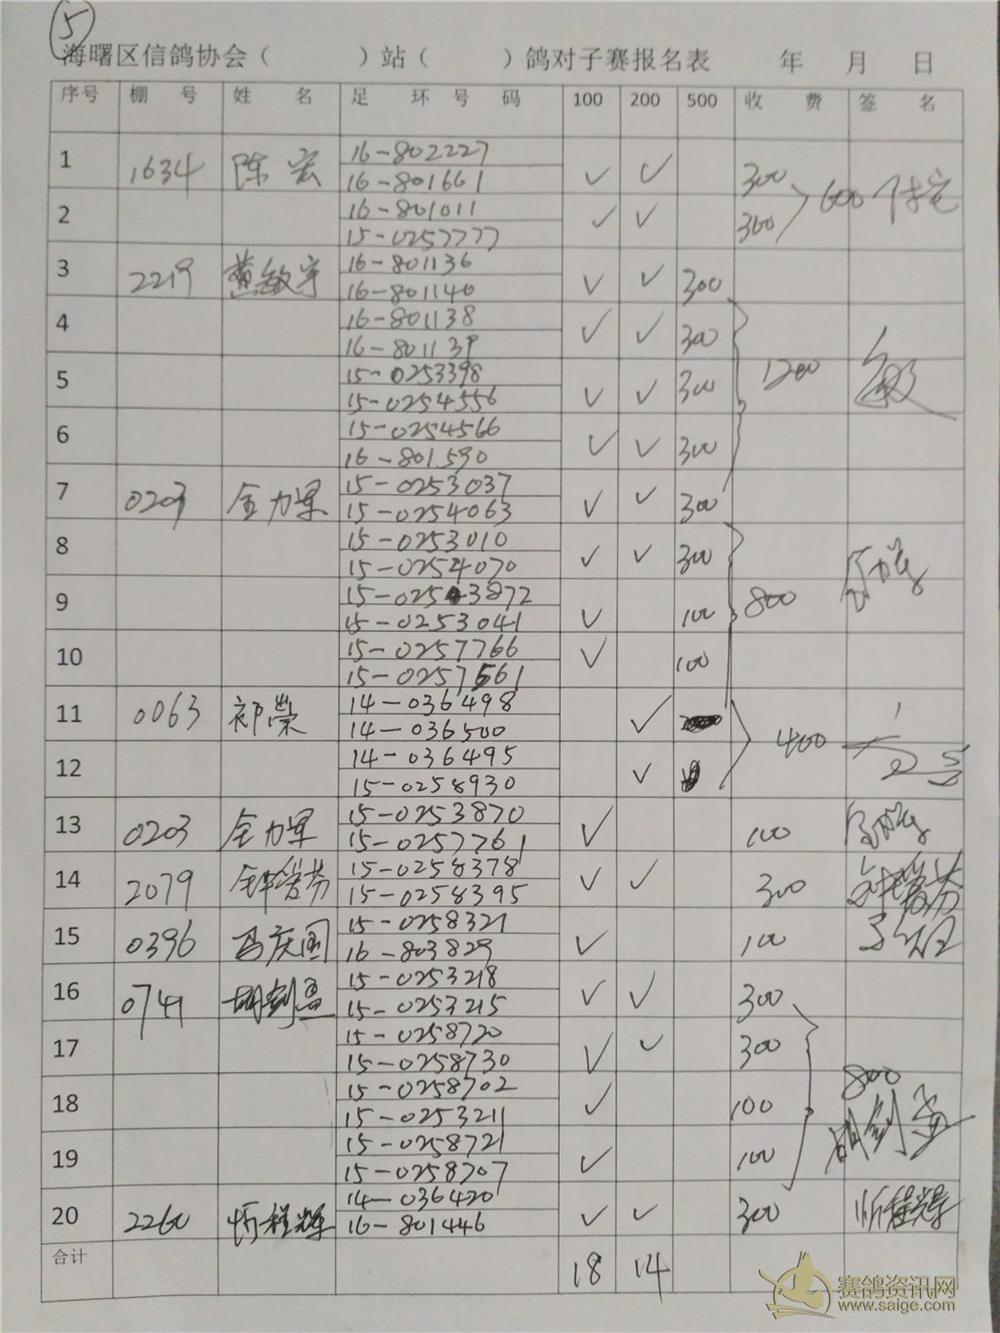 5
海曙区信鸽协会（ ）站（ ）鸽对子赛报名表 年 月 日
序号 棚 号 姓 名 足 环 号 码 100 200 500 收 费 签 名
1 1634 陈宏 16-802227 ✓ ✓ 300
16-801661
600
2 16-801011 ✓ ✓ 300
15-0257777
3 2219 黄敏宇 16-801136 ✓ ✓ 300
16-801140
4 16-801138 ✓ ✓ 300
16-801139
1200
5 15-0253398 ✓ ✓ 300
15-0254556
6 15-0254566 ✓ ✓ 300
16-801590
7 0203 全力军 15-0253037 ✓ ✓ 300
15-0254063
8 15-0253010 ✓ ✓ 300
15-0254070
800
9 15-0253872 ✓ 100
15-0253041
10 15-0257766 ✓ 100
15-0257561
11 0063 祁荣 14-036498 ✓
14-036500
400
12 14-036495 ✓
15-0258930
13 0203 全力军 15-0253870 ✓ 100
15-0257761
14 2079 15-0258378 ✓ ✓ 300
15-0258395
15 0396 冯庆国 15-0258321 ✓ 100
16-803829
16 0741 胡剑孟 15-0253218 ✓ ✓ 300
15-0253215
17 15-0258720 ✓ ✓ 300
15-0258730
800
18 15-0258702 ✓ 100
15-0253211
胡剑孟
19 15-0258721 ✓ 100
15-0258707
20 2260 忻程辉 14-036420 ✓ ✓ 300 忻程辉
16-801446
合计 18 14
赛鸽资讯网
www.saige.com